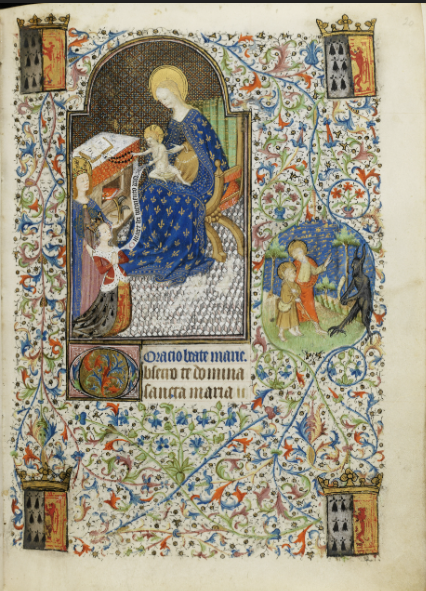 Oracio beate marie.
bsecro te domina
sancta maria